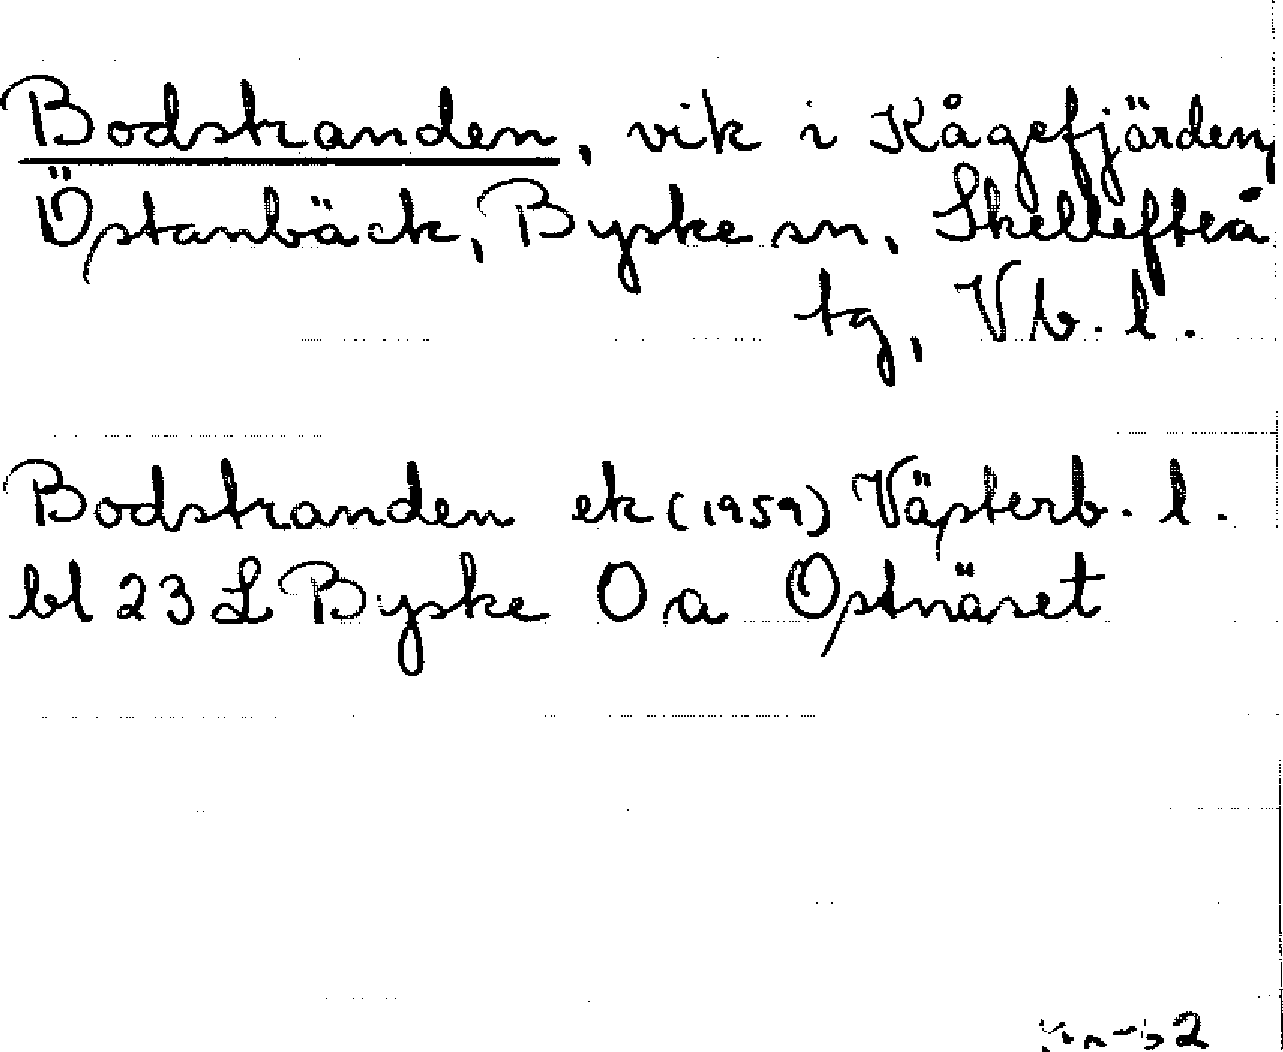 Bodstranden, vik i Kågefjärden,
Östanbäck, Byske sn, Skellefteå
tg, Vb. l.
Bodstranden ek (1959) Västerb. l.
bl 23 L Byske O a Ostnäset